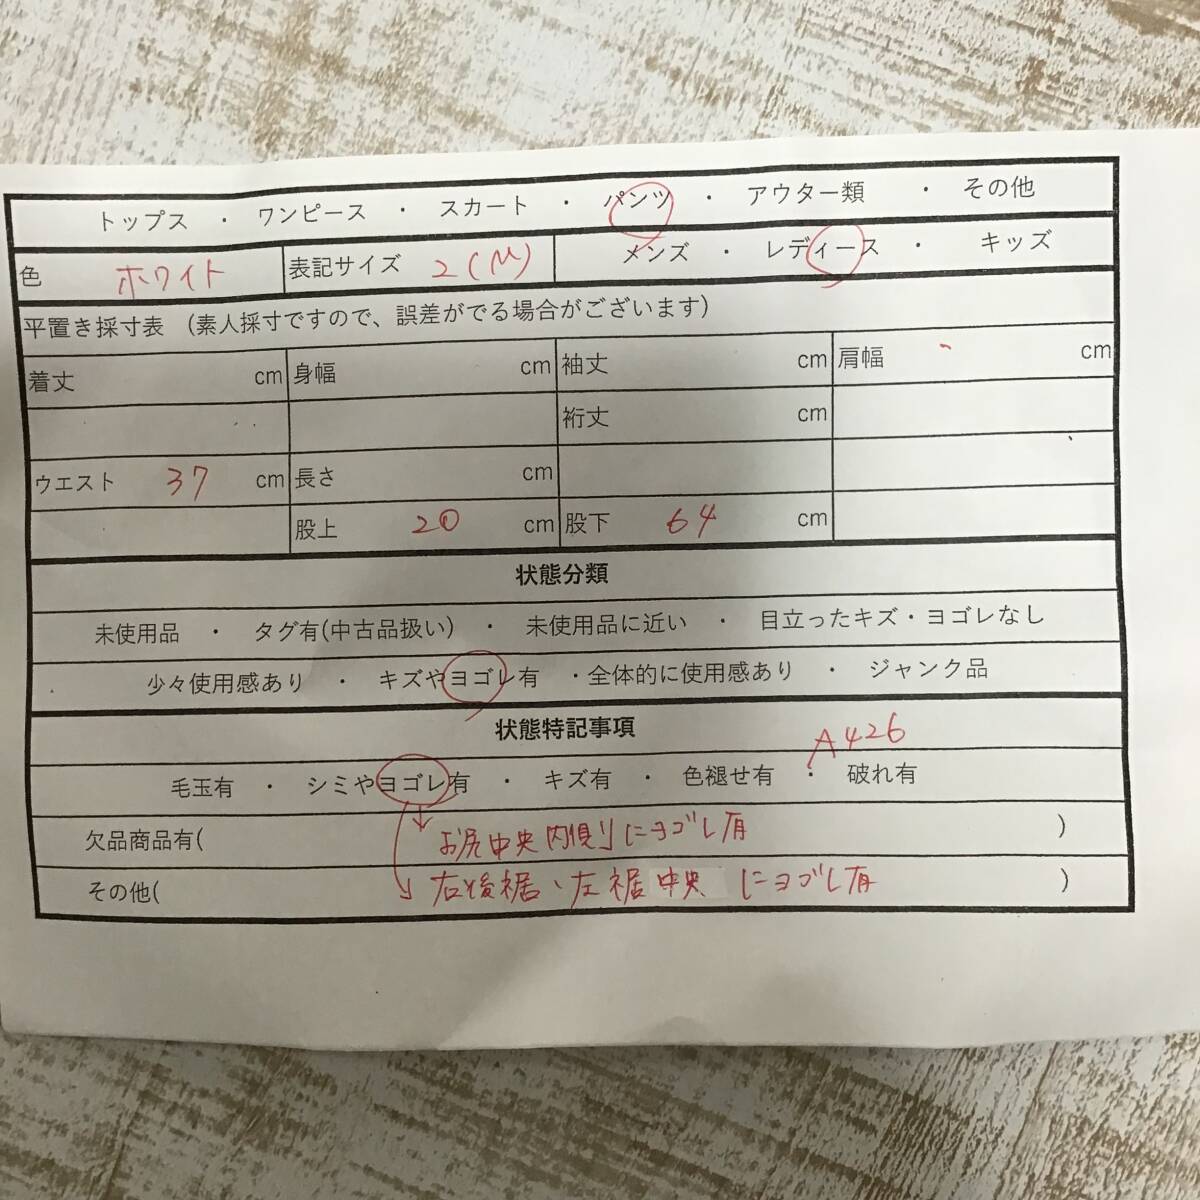 トップス ・ ワンピース ・ スカート ・ パンツ ・ アウター類 ・ その他
色 ホワイト 表記サイズ 2(M) メンズ ・ レディース ・ キッズ
平置き採寸表 (素人採寸ですので、誤差がでる場合がございます)
着丈 cm 身幅 cm 袖丈 cm 肩幅 cm
裄丈 cm
ウエスト 37 cm 長さ cm
股上 20 cm 股下 64 cm
状態分類
未使用品 ・ タグ有(中古品扱い) ・ 未使用品に近い ・ 目立ったキズ・ヨゴレなし
少々使用感あり ・ キズやヨゴレ有 ・全体的に使用感あり ・ ジャンク品
状態特記事項
A426
毛玉有 ・ シミやヨゴレ有 ・ キズ有 ・ 色褪せ有 ・ 破れ有
欠品商品有( お尻中央内側にヨゴレ有 )
その他( 右後裾、左裾中央 にヨゴレ有 )